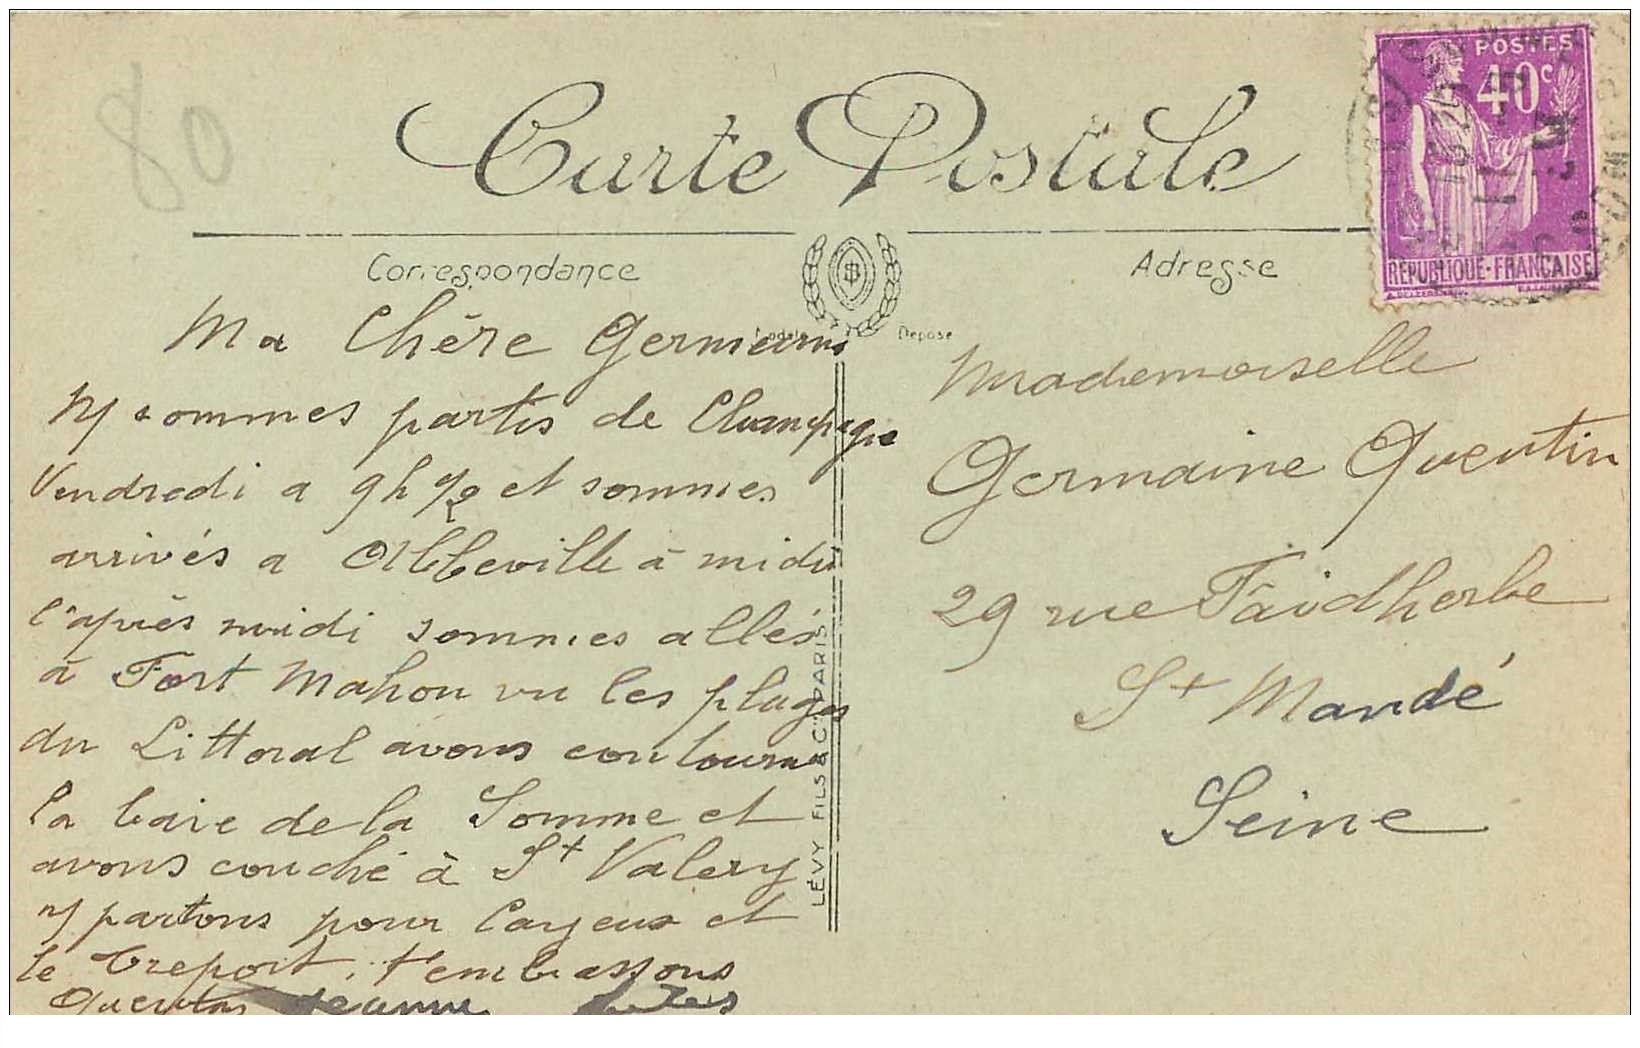 80
Carte Postale
POSTES
40c
RÉPUBLIQUE-FRANÇAISE
Correspondance
Adresse
Modèle Déposé
Ma Chère Germaine
N sommes partis de Champagne
Vendredi a 9h ½ et sommes
arrivés a Abbeville à midi
l'après midi sommes allés
à Fort Mahon vu les plages
du Littoral avons contourné
la baie de la Somme et
avons couché à St Valery
N partons pour Cayeux et
le Treport. t'embrassons
Quentin Jeanne
LÉVY FILS & Cie PARIS
Mademoiselle
Germaine Quentin
29 rue Faidherbe
St Mandé
Seine